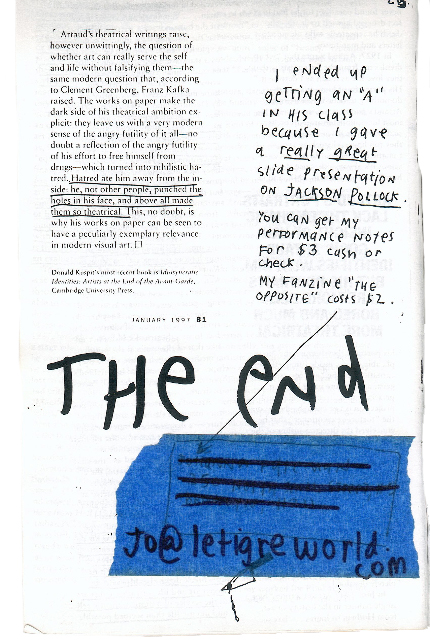 Artaud's theatrical writings raise,
however unwittingly, the question of
whether art can really serve the self
and life without falsifying them—the
same modern question that, according
to Clement Greenberg, Franz Kafka
raised. The works on paper make the
dark side of his theatrical ambition ex-
plicit: they leave us with a very modern
sense of the angry futility of it all—no
doubt a reflection of the angry futility
of his effort to free himself from
drugs—which turned into nihilistic ha-
tred. Hatred ate him away from the in-
side: he, not other people, punched the
holes in his face, and above all made
them so theatrical. This, no doubt, is
why his works on paper can be seen to
have a peculiarly exemplary relevance
in modern visual art. []
Donald Kuspit's most recent book is Idiosyncratic
Identities: Artists at the End of the Avant-Garde,
Cambridge University Press.
JANUARY 1997 81
I ENDED UP
GETTING AN "A"
IN HIS CLASS
because I gave
a really great
slide presentation
ON JACKSON POLLOCK.
You can get my
performance notes
for $3 cash or
check.
MY FANZINE "THE
OPPOSITE" costs $2.
THE END
JO@letigreworld.
com